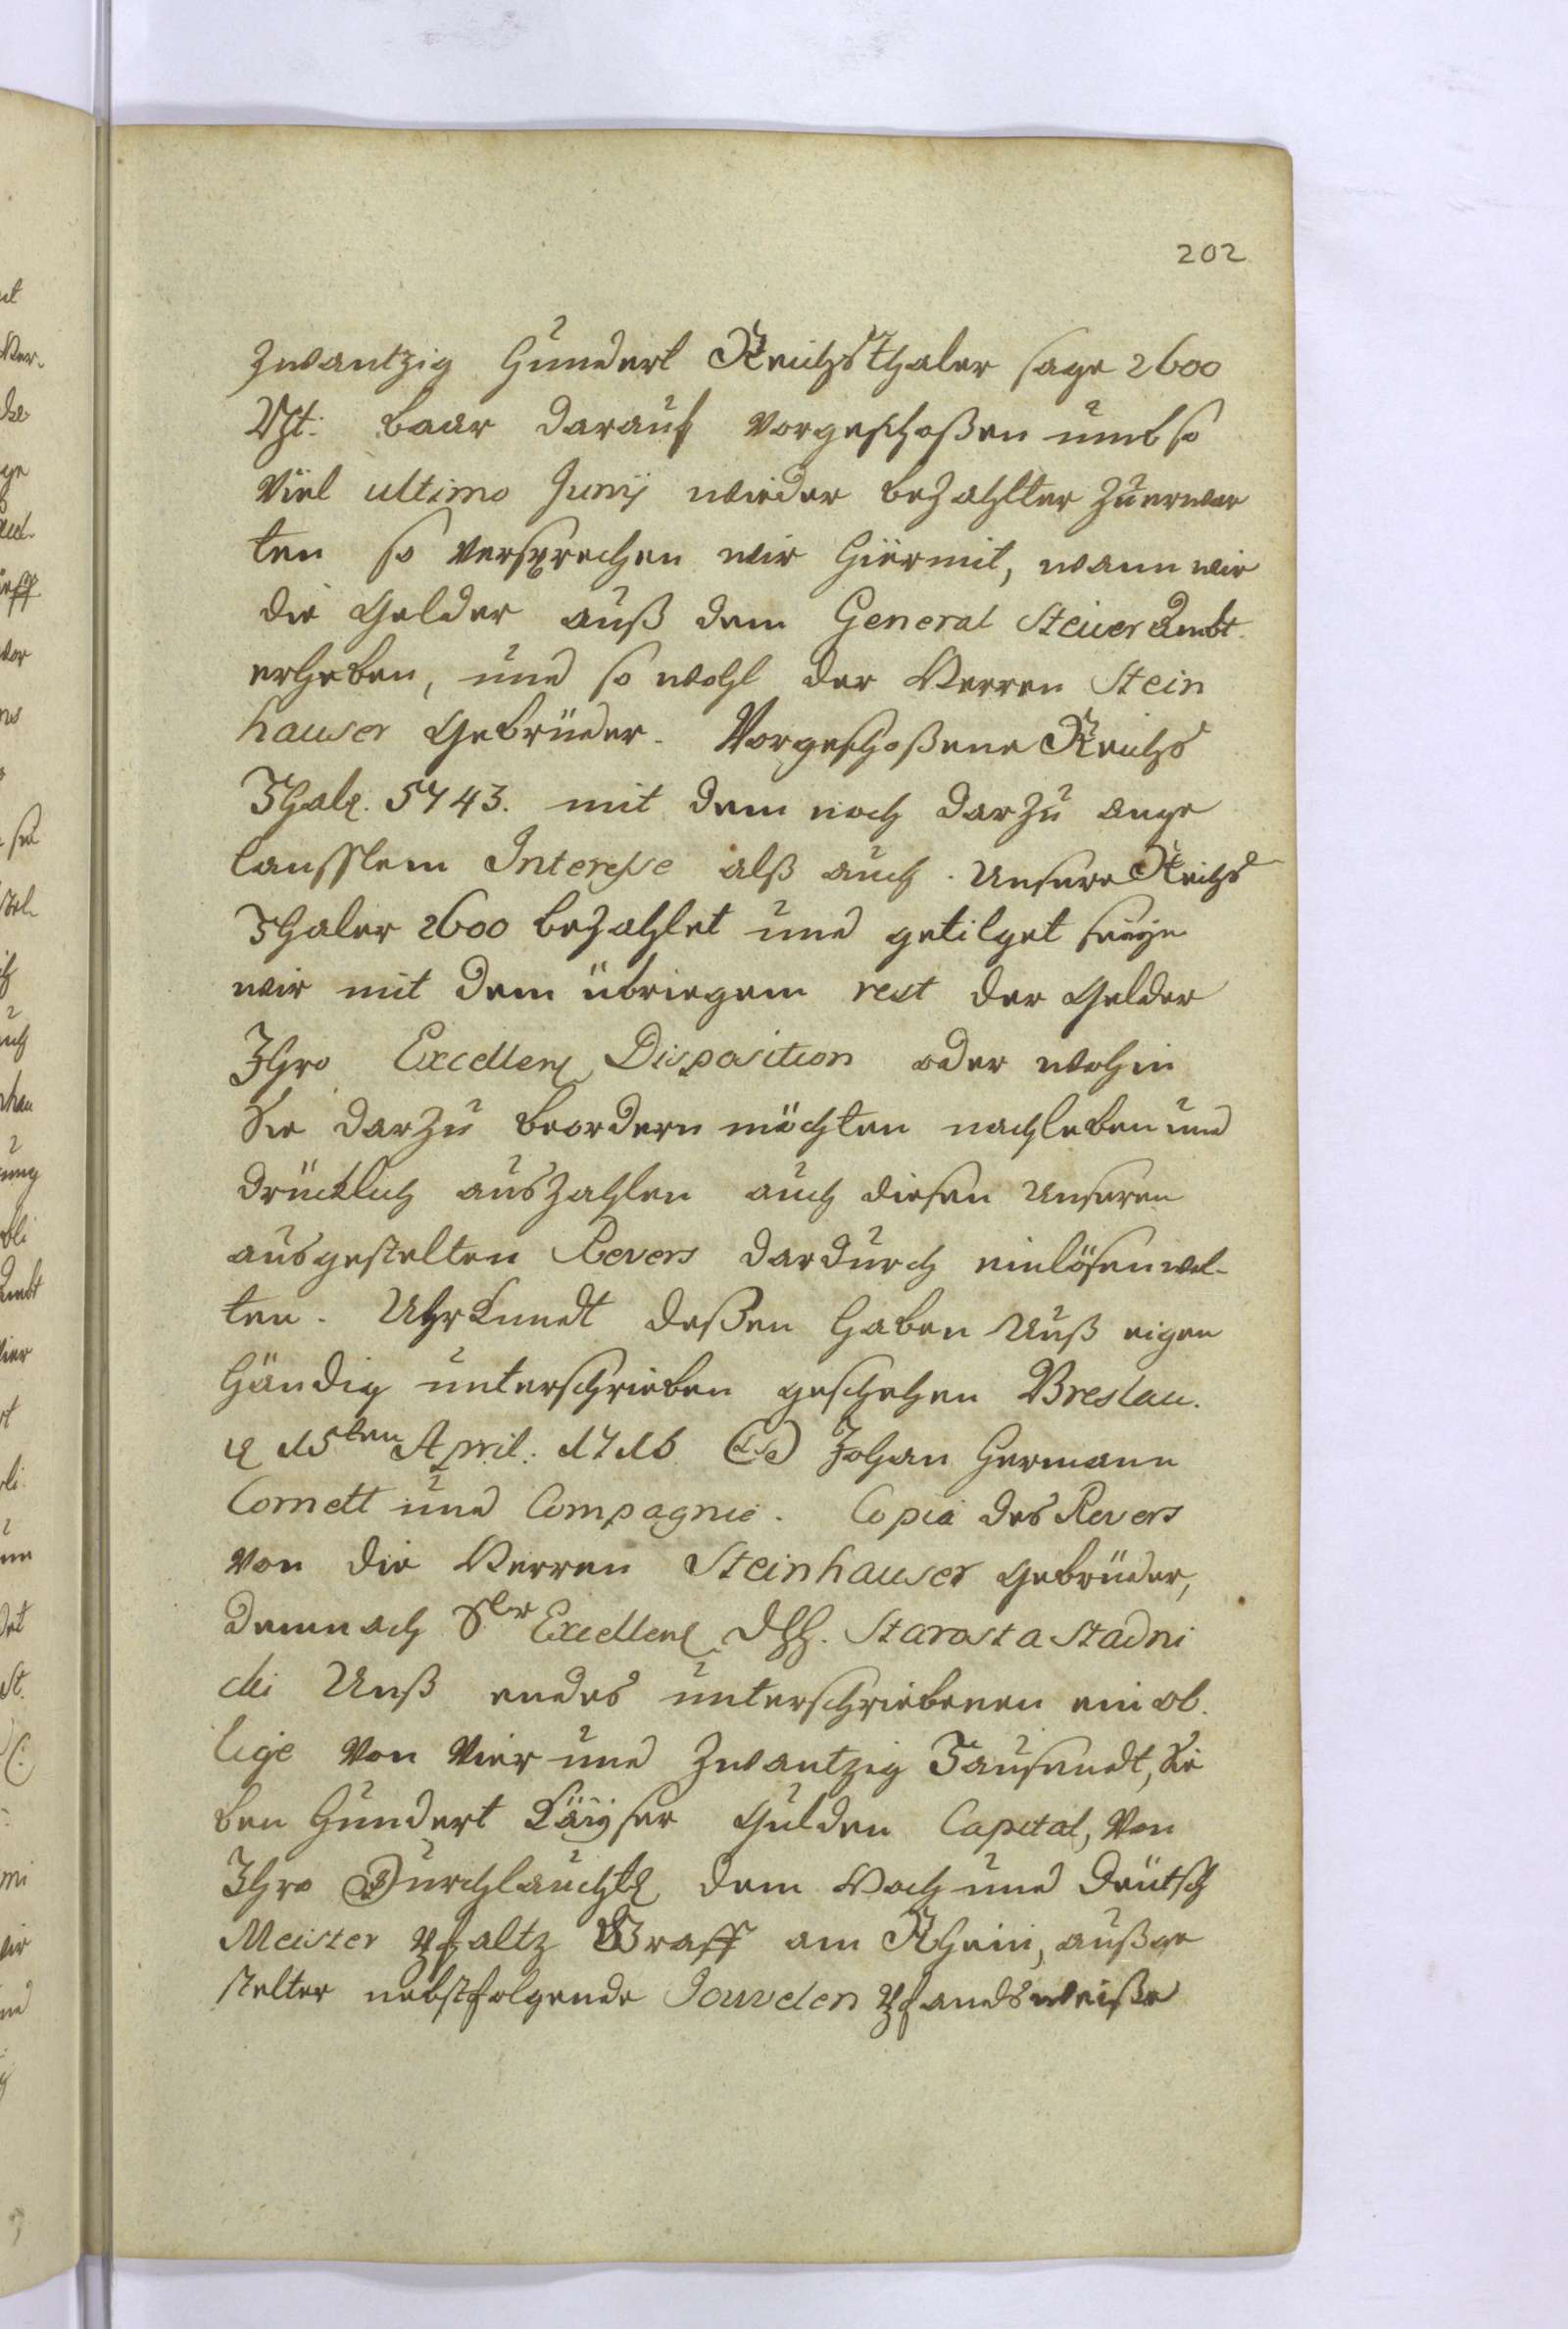 202
zwantzig Hundert Reichsthaler sage 2600
Rht: baar darauf vorgeschoßen umb so
viel ultimo Junij wieder bezahlter zuerwar
ten so versprechen wir hiermit, wann wir
die Gelder auß dem General Steuer Ambt
erheben, und so wohl der Herren Stein
hauser Gebrüder. Vorgeschoßene Reichs
Thalr. 5743. mit dem noch darzu ange
laufftem Interesse alß auch. Unsere Reichs
Thaler 2600 bezahlet und getilget seyn
wir mit dem übriegem rest der Gelder
Ihro Excellenz Disposition oder wohin
Sie darzu beordern möchten nachleben und
drücklich auszahlen auch diesen Unseren
ausgestelten Revers dardurch einlösen wol-
ten. Uhrkundt deßen haben Unß eigen
händig unterschrieben geschehen Breslau.
d 15ten April: 1716 (LS) Johan Hermann
Cornett und Compagnie. Copia des Revers
von die Herren Steinhauser Gebrüder,
demnach Sr Excellenz Starosta Stadni
cki Unß endes unterschriebenen ein ob.
lige von Vier und zwantzig Tausendt, Sie
ben Hundert Käyser Gulden Capital, von
Ihro Durchlaucht dem Hoch und Deütsch
Meister Pfaltz Graff am Rhein, außge
stelter nebst folgende Jouvelen Pfandsweiße